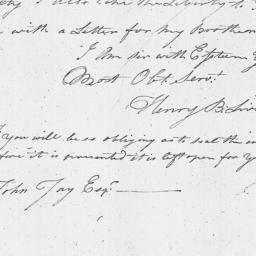 I also take the Liberty to
with a Letter for my Brother
I Am sir with Esteem
Most Obt. Servt.
Henry B. Liv
you will be so obliging as to seal the
it is presented it is left open for y
John Jay Esqr.